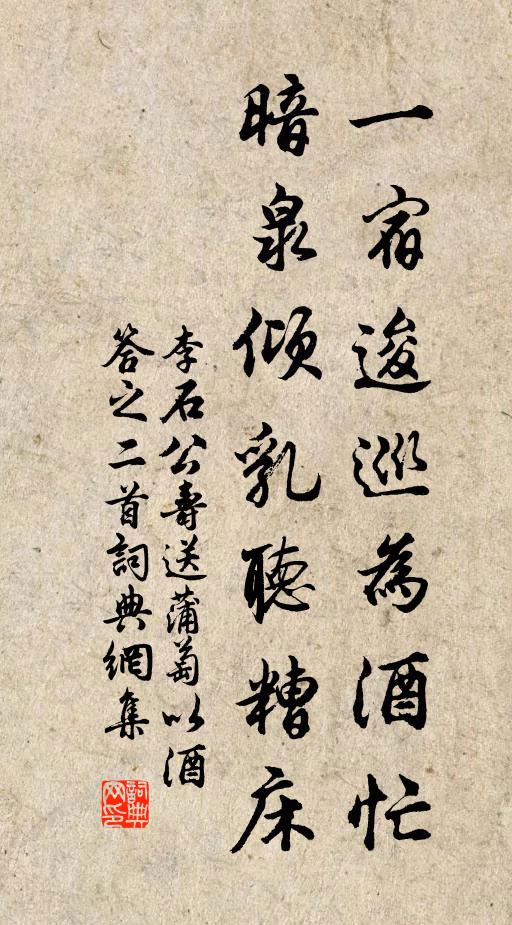 一宿逡巡為酒忙
暗泉傾乳聽糟床
李石公壽送蒲萄以酒
答之二首詞典網集
詞典网印